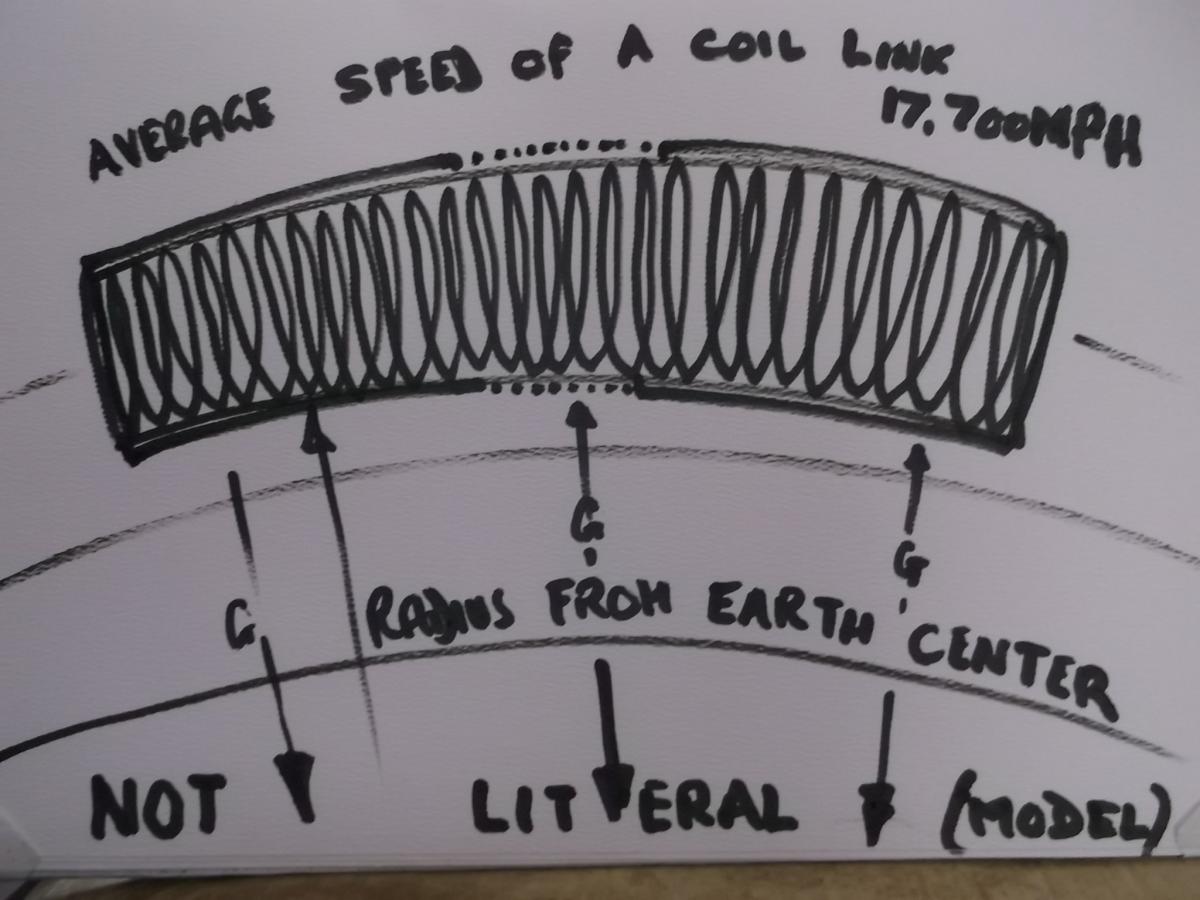 AVERAGE SPEED OF A COIL LINK
17.700MPH
G
G
G
RADIUS FROM EARTH CENTER
NOT LITERAL (MODEL)